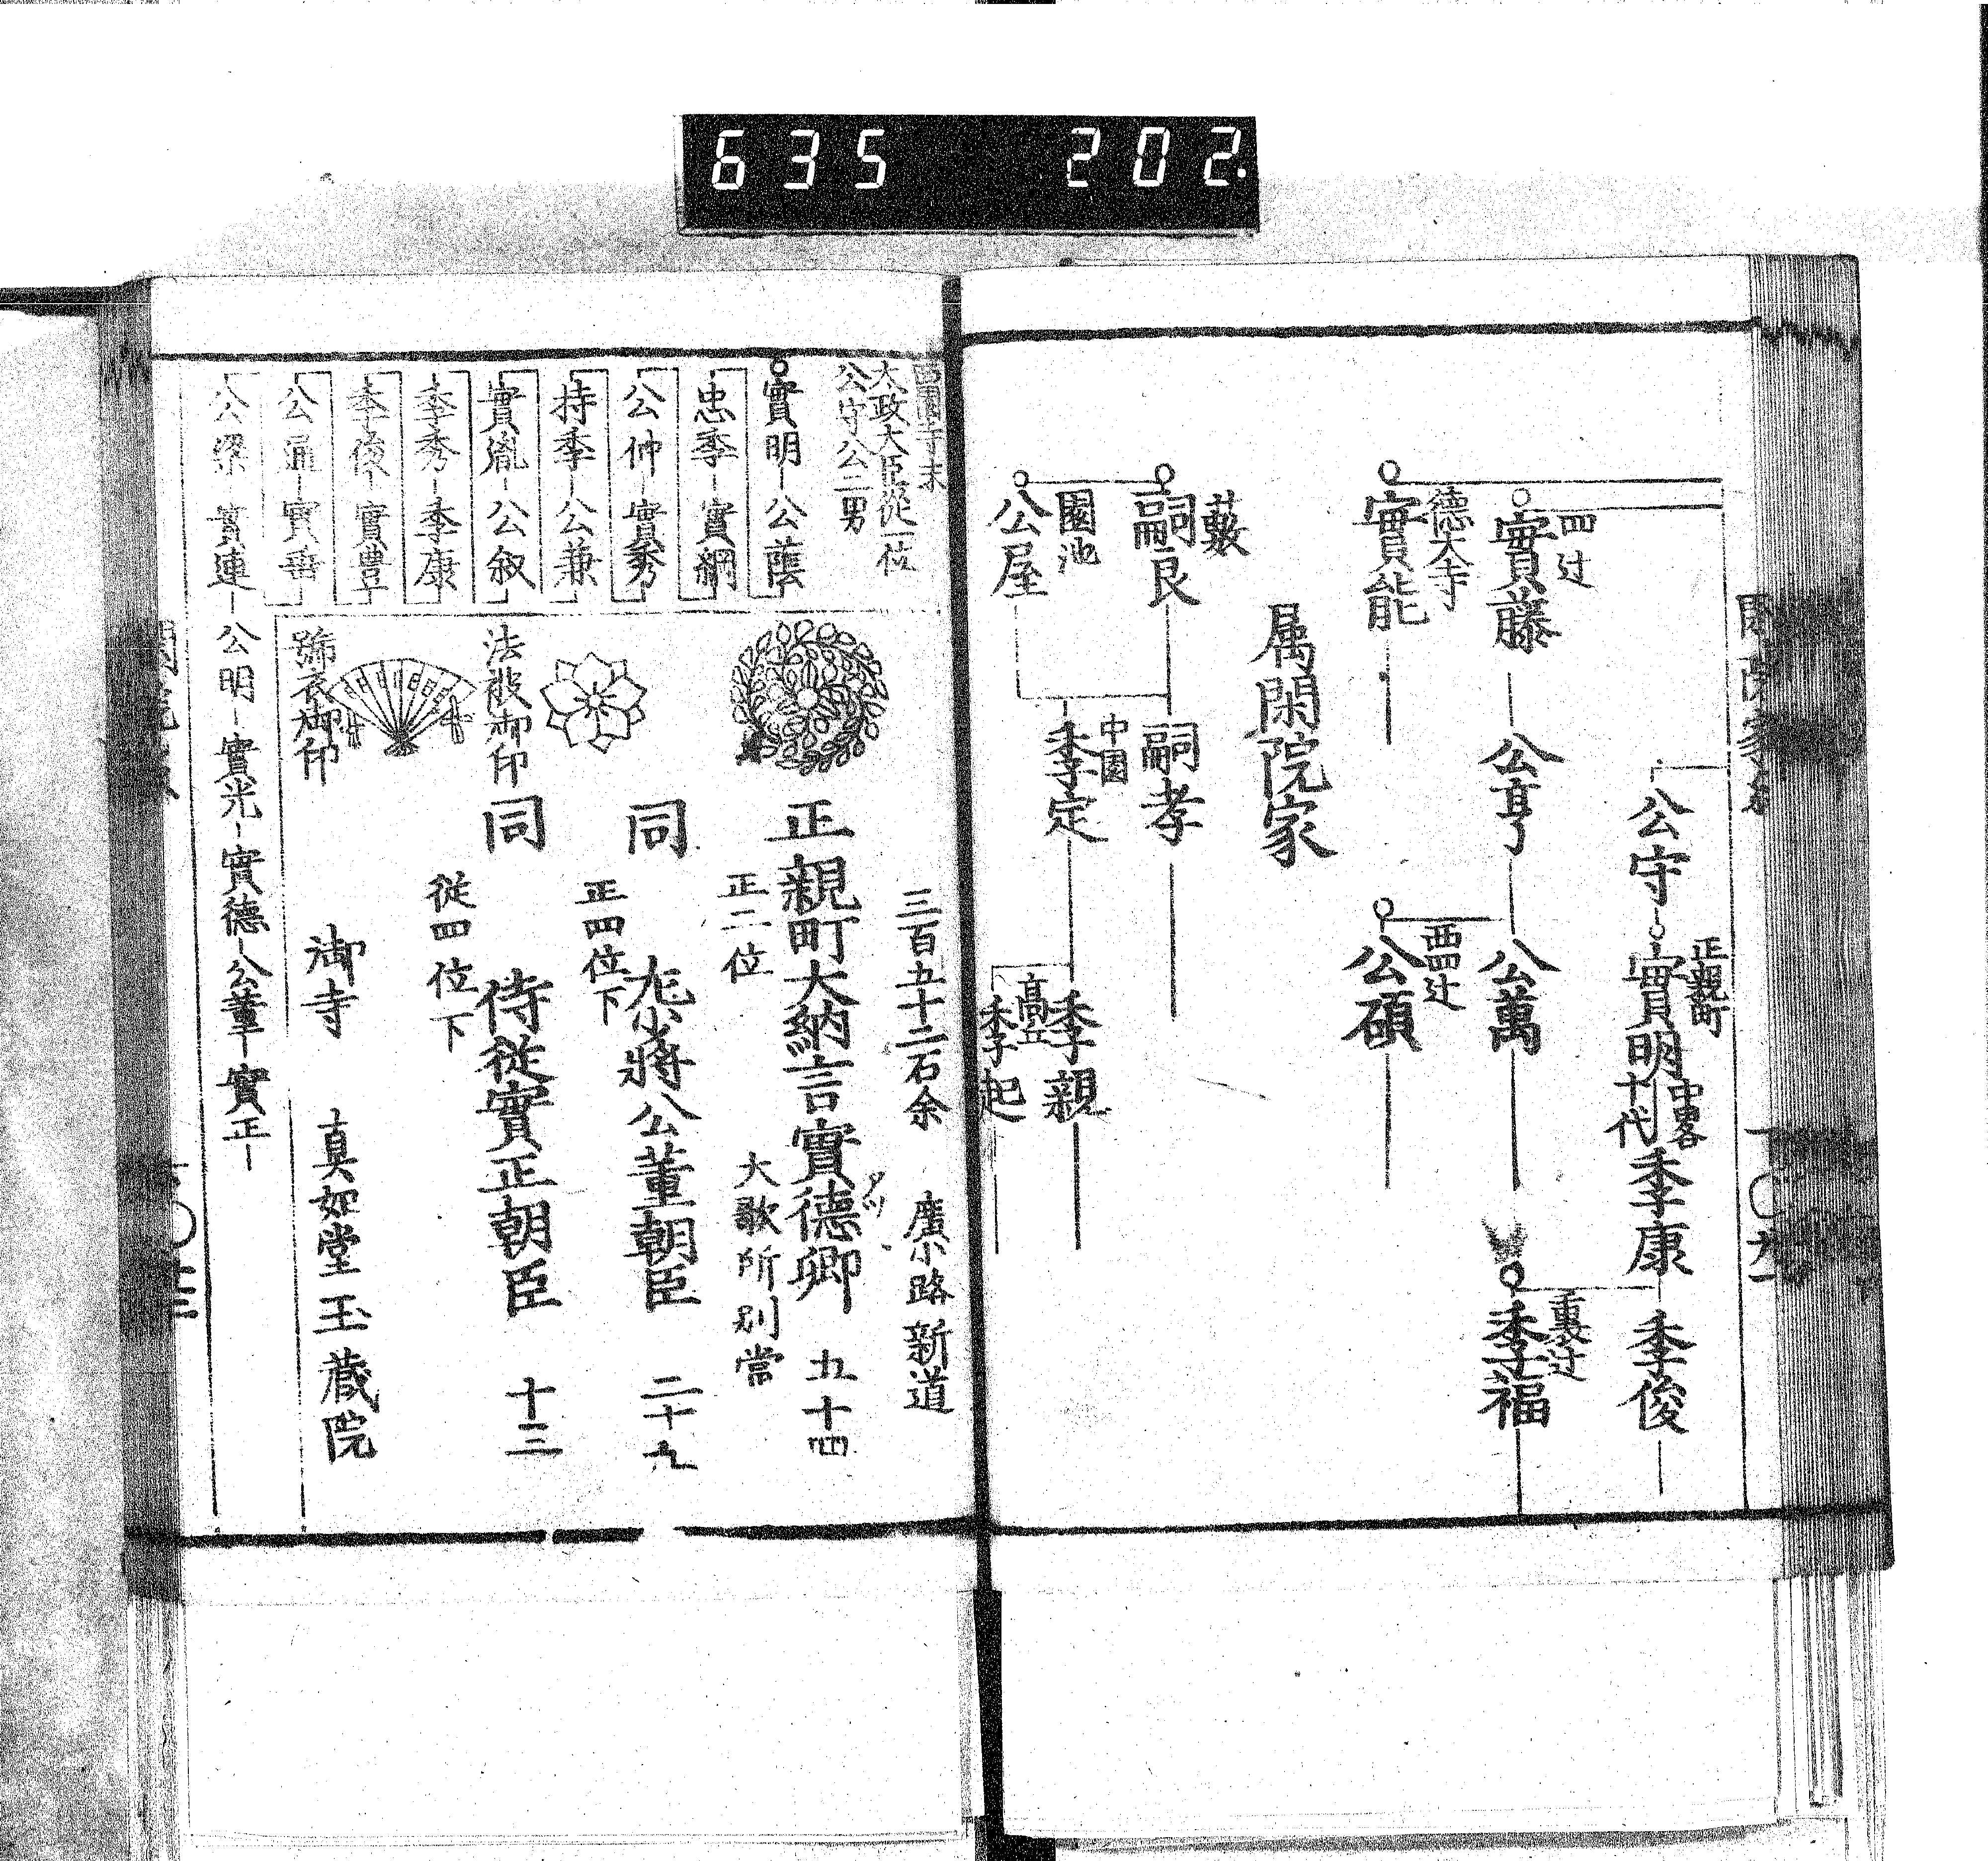 635 202.
公守
正親町
實明
中畧
十代
季康
季俊
四辻
實藤
公亨
公萬
重辻
季福
德大寺
實能
西四辻
公碩
属閑院家
藪
嗣良
嗣孝
園池
公屋
中園
季定
季親
髙丘
季起
西園寺末
太政大臣從一位
公守公二男
實明
公蔭
忠季
實綱
公仲
實秀
持季
公兼
實胤
公叙
季秀
季康
季俊
實豊
公通
實連
公明
實光
實德
公董
實正
三百五十二石余
廣小路新道
正親町大納言實德卿
五十四
正二位
大歌所別當
同
左少將公董朝臣
二十九
正四位下
法被御印
同
侍從實正朝臣
十三
從四位下
號衣御印
御寺
真如堂玉蔵院